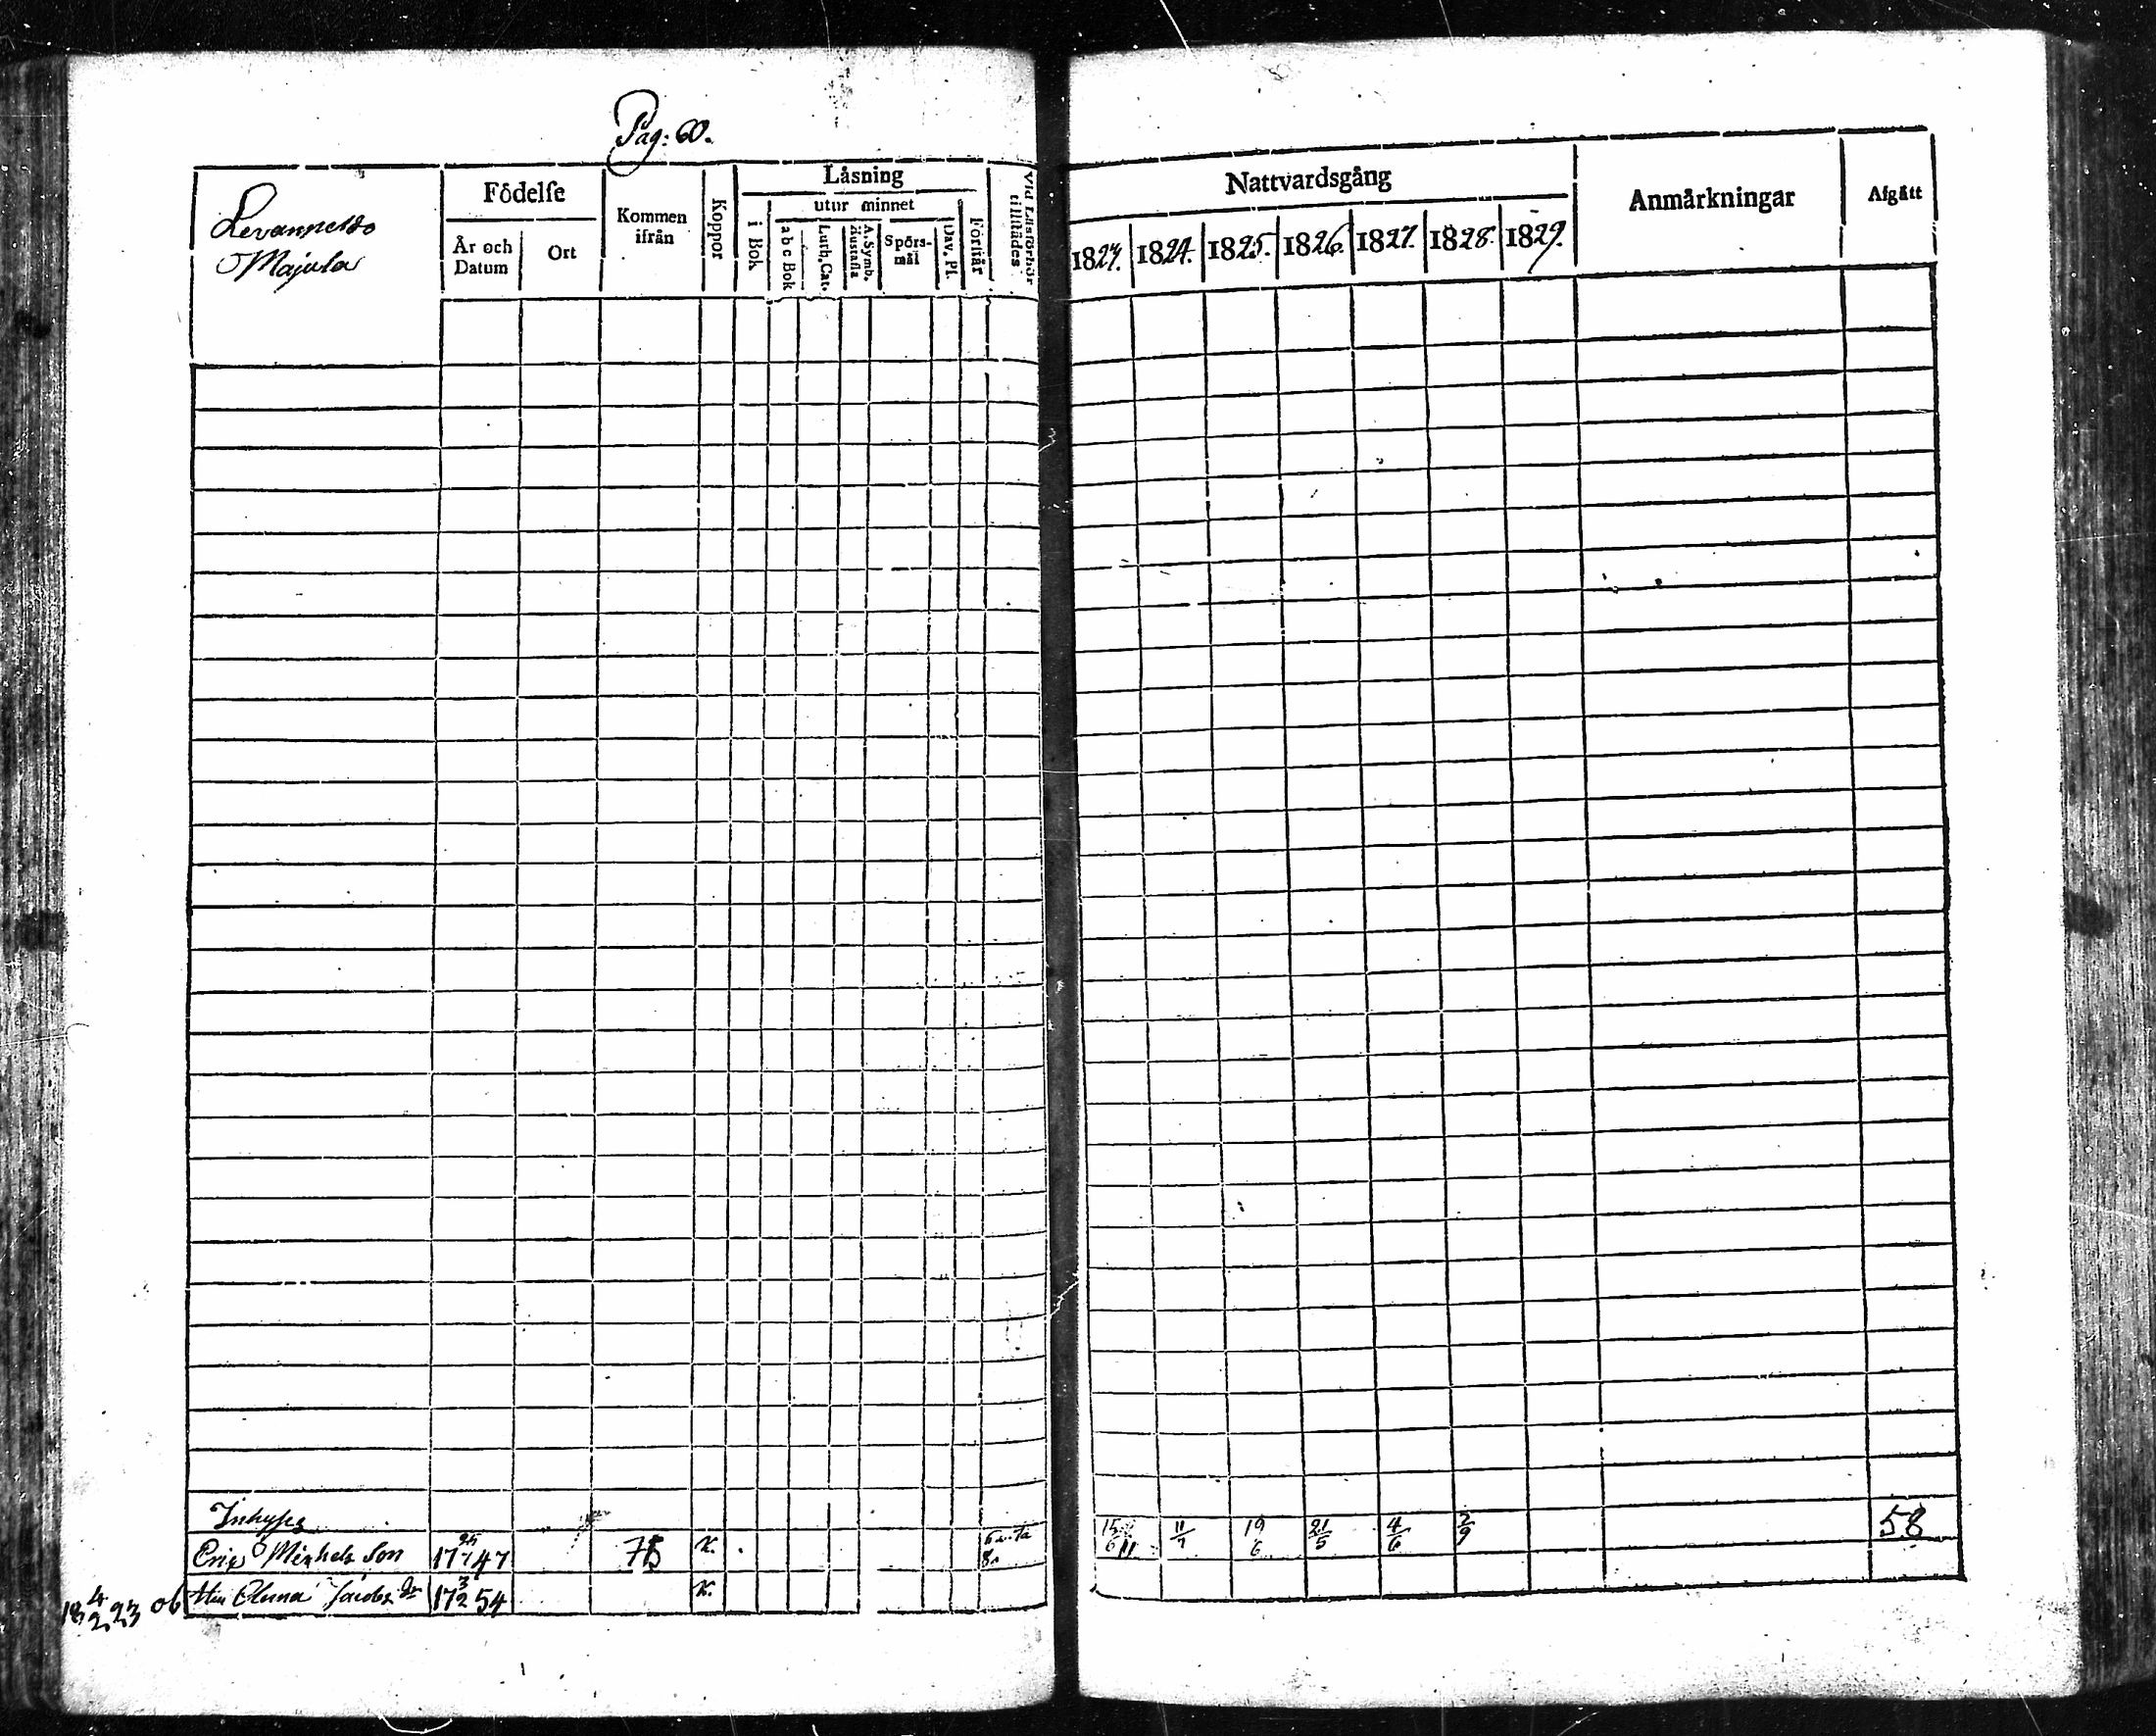 Pag: 60.
Levanperko
Majula
Födelse
År och Datum
Ort
Kommen ifrån
Koppor
Läsning
i Bok
utur minnet
a b c Bok
Luth. Cat.
A. Symb. Hustafla
Spörs-mål
Dav. Ps.
Förstår
Vid Läsförhör tillstädes
Nattvardsgång
1823. 1824. 1825. 1826. 1827. 1828. 1829.
Anmärkningar
Afgått
Inhyses
Eric Michels Son 17 47 75 K. 15/6 11/7 19/6 21/5 4/6 2/9 58
18 4/2 23 ob Hu Jacobs dr 17 3/2 54 K.